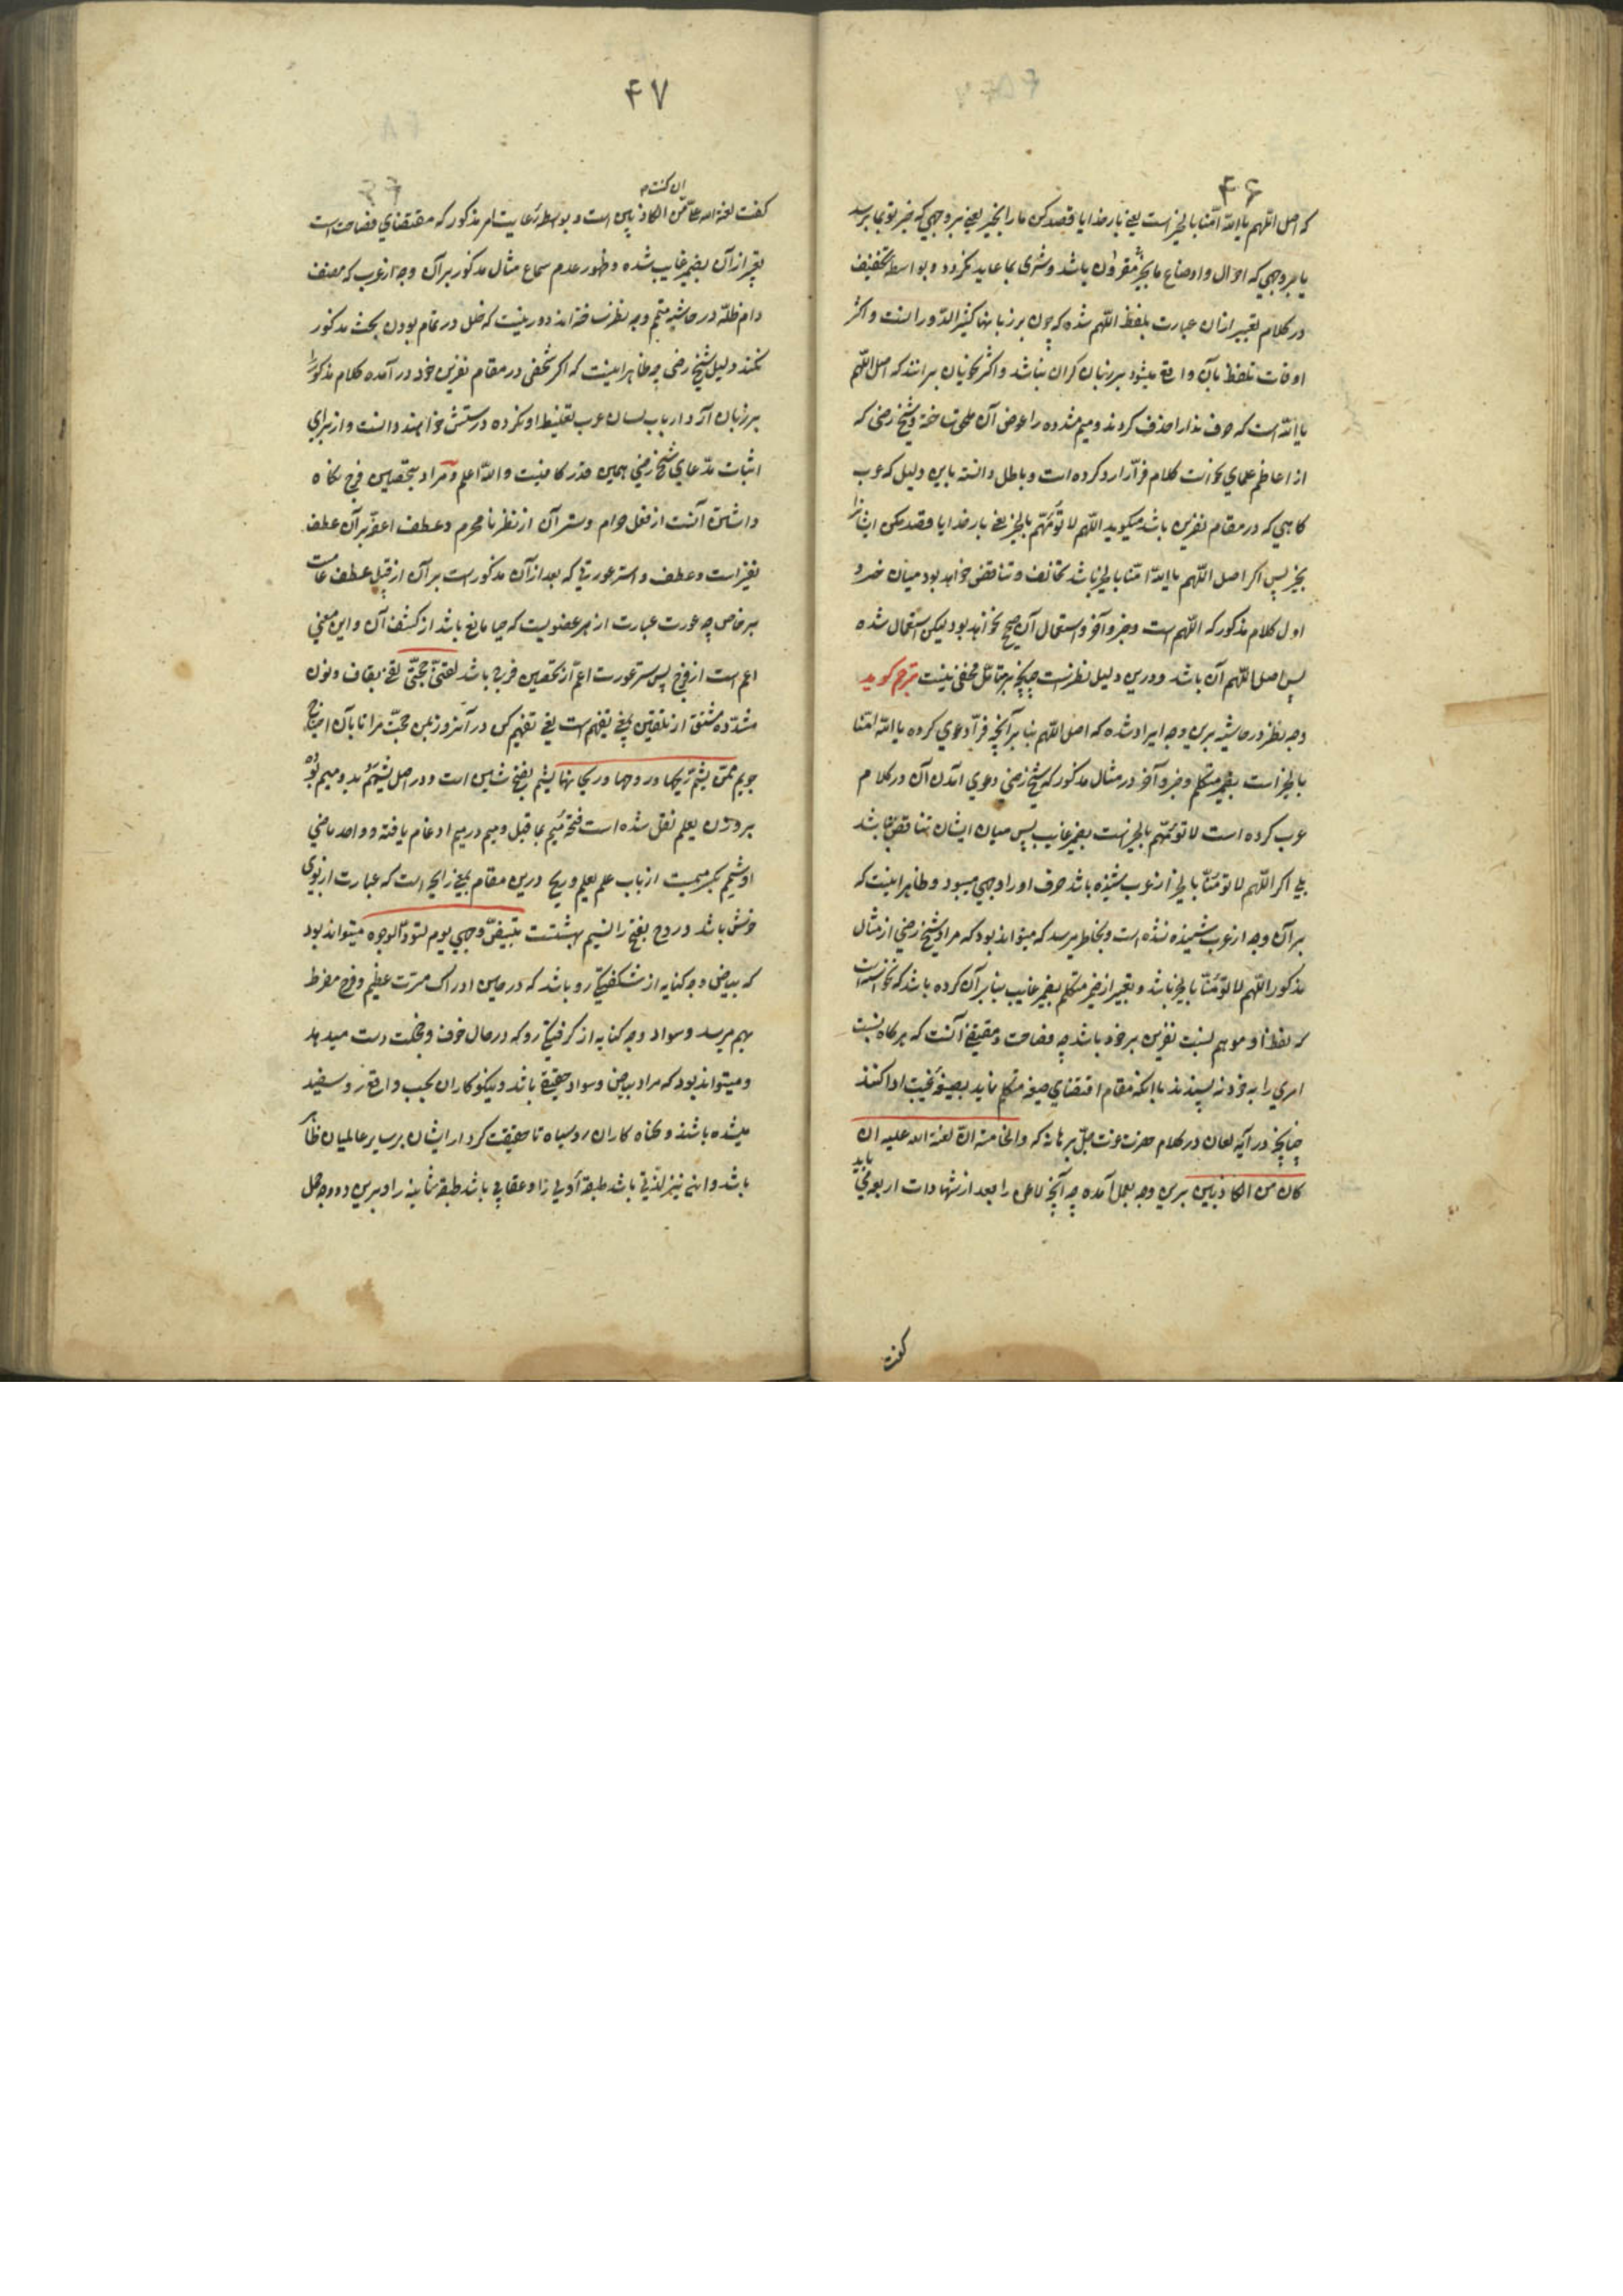 ۴۶
که اصل اللهم یا الله امّنا بالخیر است یعنی بار خدایا قصد کن ما را بخیر یعنی بر وجهی که خیر تو بما برسد
یا بر وجهی که احوال و اوضاع ما بخیر مقرون باشد و شری بما عاید نکردد و بواسطه تخفیف
در کلام تعبیر ازان عبارت بلفظ اللهم شده که چون بر زبانها کثیر الدوران است و اکثر
اوقات تلفظ بآن واقع میشود بر زبان کران نباشد و اکثر نحویان برانند که اصل اللهم
یا الله است که حرف ندا را حذف کردند و میم مشدده را عوض آن ملحق ساخته و شیخ رضی که
از اعاظم علمای نحو است کلام فرّا را رد کرده است و باطل دانسته باین دلیل که عرب
کاهی که در مقام نفرین باشد میکوید اللهم لا تؤمّهم بالخیر یعنی بار خدایا قصد مکن ایشانرا
بخیر پس اکر اصل اللهم یا الله امّنا بالخیر باشد تخالف و تناقض خواهد بود میان جزو
اول کلام مذکور که اللهم است و جزو آخر و استعمال آن صحیح نخواهد بود لیکن استعمال شده
پس اصل اللهم آن نباشد و درین دلیل نظر است چنانچه بر متامل مخفی نیست مترجم کوید
وجه نظر در حاشیه برین وجه ایراد شده که اصل اللهم بنا بر آنچه فرّا دعوی کرده یا الله امّنا
بالخیر است بضمیر متکلم و جزو آخر در مثال مذکور که شیخ رضی دعوی آمدن آن در کلام
عرب کرده است لا تؤمّهم بالخیر است بضمیر غایب پس میان ایشان تناقض نباشد
بلی اکر اللهم لا تؤمّنا بالخیر از عرب شنیده باشد حرف او را وجهی میبود و ظاهر اینست که
بر آن وجه از عرب شنیده نشده است و بخاطر میرسد که میتواند بود که مراد شیخ رضی از مثال
مذکور اللهم لا تؤمّنا بالخیر باشد و تعبیر از ضمیر متکلم بضمیر غایب بنا بر آن کرده باشد که نخواسته است
که لفظ او موهم نسبت نفرین بر خود باشد چه فصاحت مقتضی آنست که هر کاه نسبت
امری را به خود نه پسندند با آنکه مقام اقتضای صیغه متکلم نماید بصیغه غیبت ادا کنند
چنانچه در آیه لعان در کلام حضرت عزت جل برهانه که والخامسة انّ لعنة الله علیه ان
کان من الکاذبین برین وجه بعمل آمده چه آنچه لاعن را بعد از شهادات اربع می باید
کفت
۴۷
ان کنت
کفت لعنة الله علیّ من الکاذبین است و بواسطه رعایت امر مذکور که مقتضای فصاحت است
تعبیر از آن بضمیر غایب شده و ظهور عدم سماع مثال مذکور بر آن وجه از عرب که مصنف
دام ظله در حاشیه متمم وجه نظر ساخته اند دور نیست که خلل در تمام بودن بحث مذکور
نکند و دلیل شیخ رضی چه ظاهر اینست که اکر شخصی در مقام نفرین خود در آمده کلام مذکور را
بر زبان آرد ارباب لسان عرب تغلیط او نکرده درستش خواهند دانست و از برای
اثبات مدعای شیخ رضی همین قدر کافیست والله اعلم و مراد بتحصین فرج نکاه
داشتن آنست از فعل حرام و ستر آن از نظر نا محرم و عطف اعفّه بر آن عطف
تفسیر است و عطف و استر عورتی که بعد از آن مذکور است بر آن از قبیل عطف عام است
بر خاص چه عورت عبارت از هر عضویست که حیا مانع باشد از کشف آن و این معنی
اعم است از فرج پس ستر عورت اعمّ از تحصین فرج باشد لقنّی حجّتی لقّن بقاف و نون
مشدّده مشتق از تلقین بمعنی تفهیم است یعنی تفهیم کن در آنروز بمن حجت مرا تا بآن احتجاج
جویم ممّن یشمّ ریحها و روحها و ریحانها یشم بفتح شین است و در اصل یشمم بدو میم بوده
بر وزن یعلم نقل شده است فتحه میم بما قبل و میم در میم ادغام یافته و واحد ماضی
او شمم بکسر میمست از باب علم یعلم و ریح درین مقام بمعنی رایحه است که عبارت از بوی
خوش باشد و روح بفتح را نسیم بهشتست تبیضّ وجهی یوم تسودّ الوجوه میتواند بود
که بیاض وجه کنایه از شکفتکی رو باشد که در حین ادراک مسرت عظیم و فرح مفرط
بهم میرسد و سواد وجه کنایه از کرفتکی رو که در حال خوف و خجلت دست میدهد
و میتواند بود که مراد بیاض و سواد حقیقی باشد و نیکوکاران بحسب واقع رو سفید
میشده باشند و کناه کاران رو سیاه تا حقیقت کردار ایشان بر سایر عالمیان ظاهر
باشد و این نیز لذتی باشد طبقه اولی را و عقابی باشد طبقه ثانیه را و برین دو وجه حمل